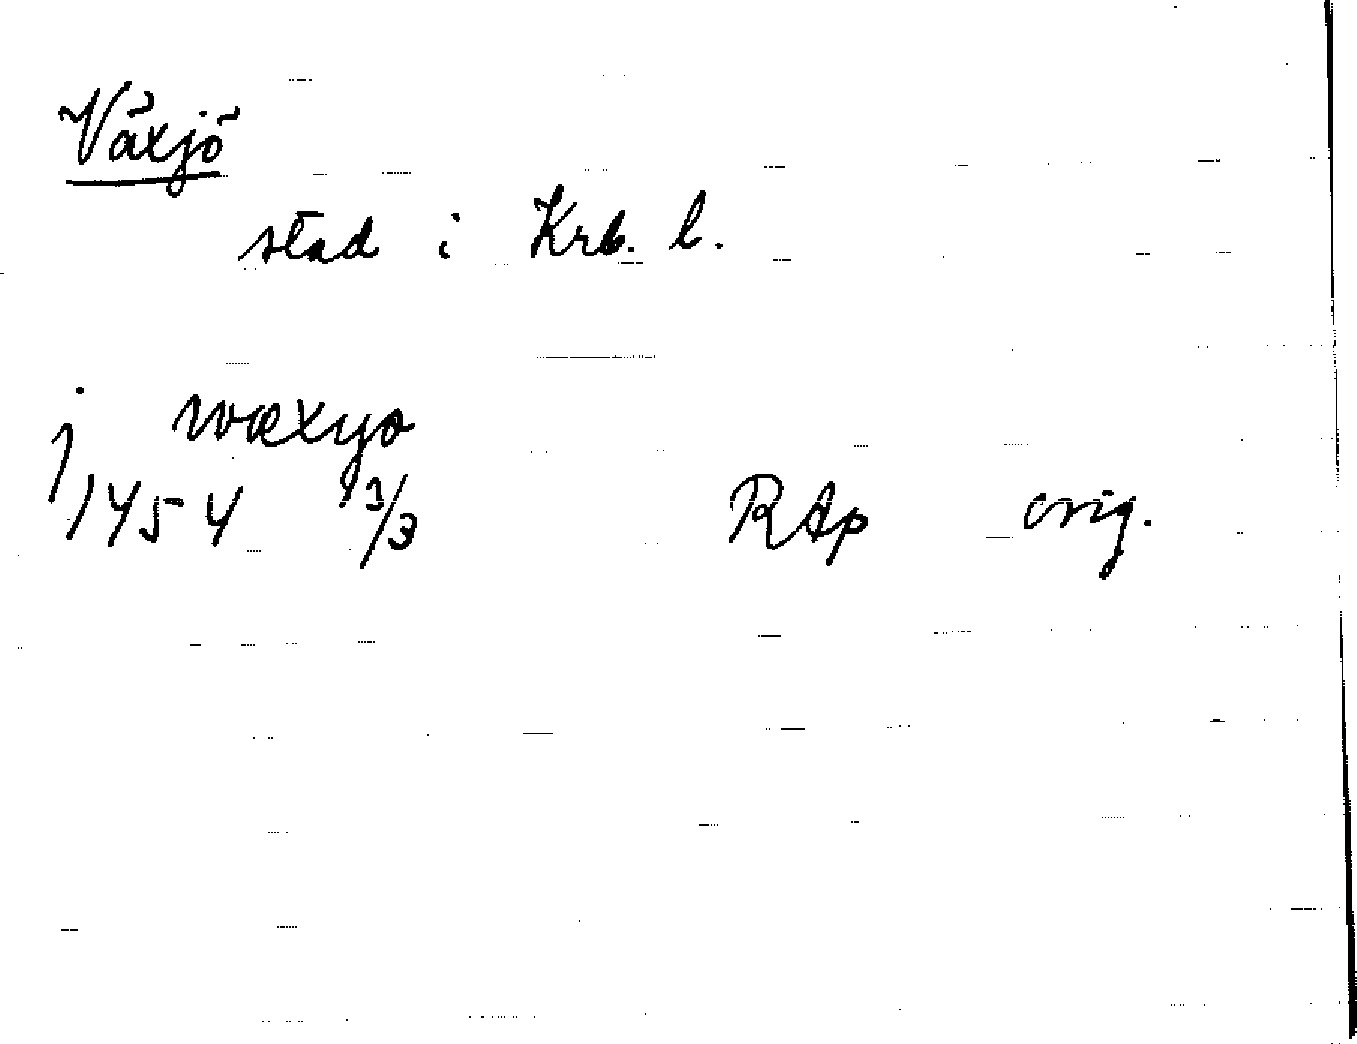 Växjö
stad i Krb. l.
j wæxyo
1454 13/3 RAp orig.